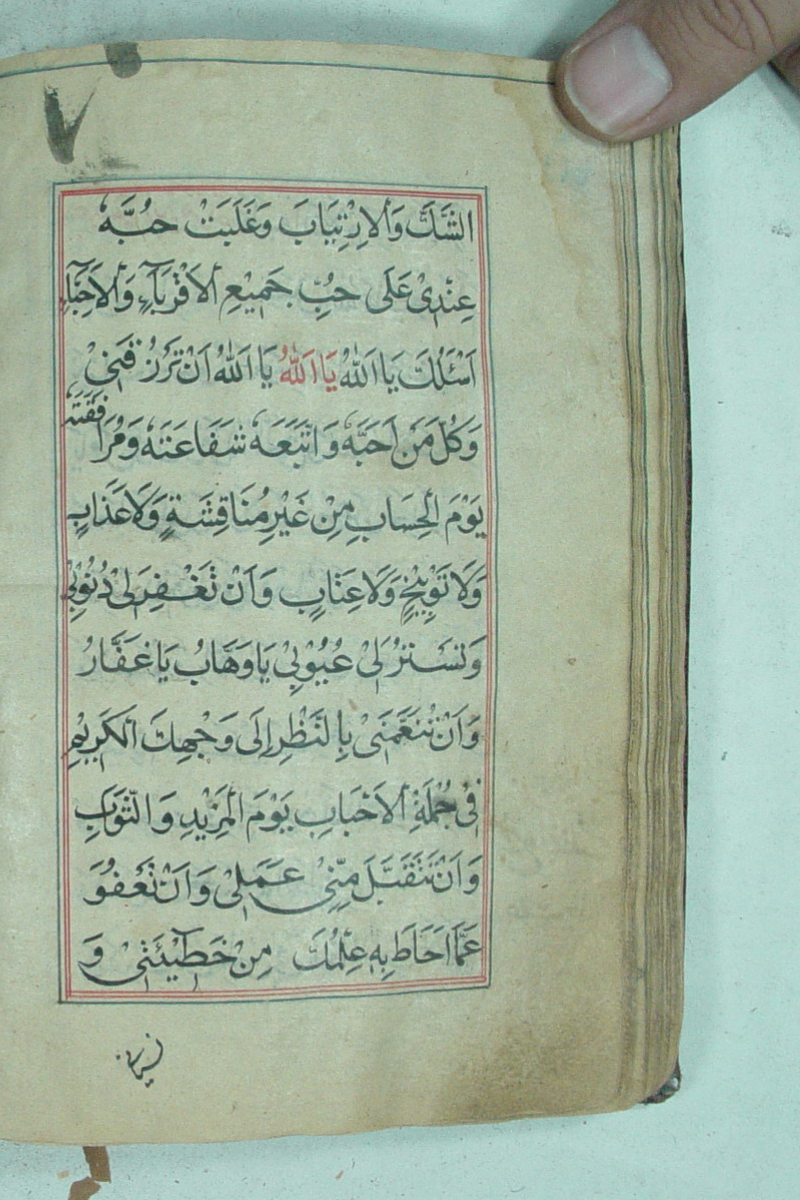 الشَّكَّ وَالاِرْتِيَابَ وَغَلَبَتْ حُبُّهُ
عِنْدِىْ عَلَى حُبِّ جَمِيْعِ الاَقْرِبَآءِ وَالاَحِبَّآءِ
اَسْئَلُكَ يَا اَللّٰهُ يَا اَللّٰهُ يَا اَللّٰهُ اَنْ تَرْزُقَنِىْ
وَكُلَّ مَنْ اَحَبَّهُ وَاتَّبَعَهُ شَفَاعَتَهُ وَمُرَافَقَتَهُ
يَوْمَ الْحِسَابِ مِنْ غَيْرِ مُنَاقَشَةٍ وَلَاعَذَابٍ
وَلَا تَوْبِيْخٍ وَلَاعِتَابٍ وَاَنْ تَغْفِرَلِىْ ذُنُوْبِىْ
وَتَسْتُرَلِىْ عُيُوْبِىْ يَاوَهَّابُ يَاغَفَّارُ
وَاَنْ تُنَعِّمَنِىْ بِالنَّظْرِ اِلَى وَجْهِكَ الْكَرِيْمِ
فِىْ جُمْلَةِ الاَحْبَابِ يَوْمَ الْمَزِيْدِ وَالثَّوَابِ
وَاَنْ تَتَقَبَّلَ مِنِّىْ عَمَلِىْ وَاَنْ تَعْفُوَ
عَمَّا اَحَاطَ بِهٖ عِلْمُكَ مِنْ خَطِيْئَتِىْ وَ
نسيانى